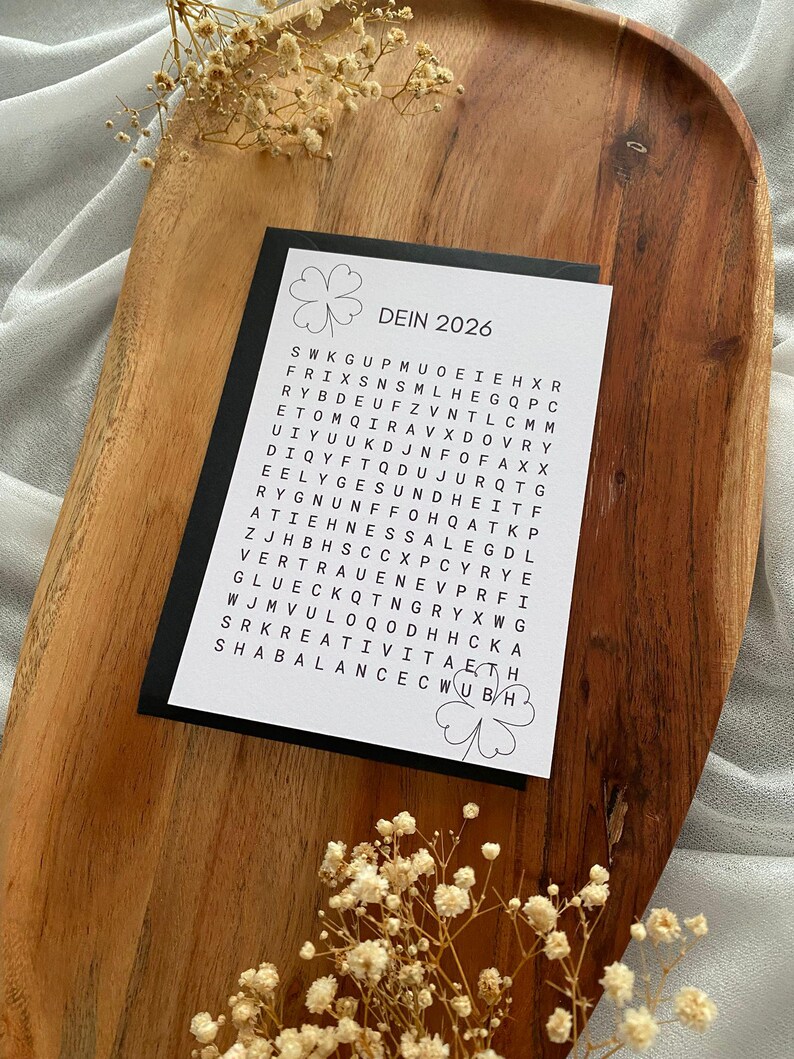 DEIN 2026
S W K G U P M U O E I E H X R
F R I X S N S M L H E G Q P C
R Y B D E U F Z V N T L C M M
E T O M Q I R A V X D O V R Y
U I Y U U K D J N F O F A X X
D I Q Y F T Q D U J U R Q T G
E E L Y G E S U N D H E I T F
R Y G N U N F F O H Q A T K P
A T I E H N E S S A L E G D L
Z J H B H S C C X P C Y R Y E
V E R T R A U E N E V P R F I
G L U E C K Q T N G R Y X W G
W J M V U L O Q O D H H C K A
S R K R E A T I V I T A E T H
S H A B A L A N C E C W U B H